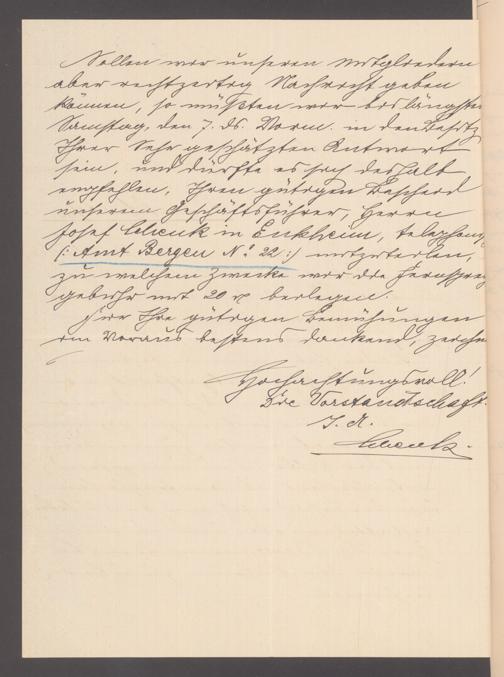 Sollen wir unseren Mitgliedern
aber rechtzeitig Nachricht geben
können, so müßten wir bis längsten
Samstag, den 7. ds. Vorm. in den Besitz
Ihrer Sehr geschätzten Antwort
sein, und dürfte es sich deshalb
empfehlen, Ihren gütigen Bescheid
unserem Geschäftsführer, Herrn
Josef Schenk in Enkheim, telephon
(: Amt Bergen N.º 22 :) mitzuteilen,
zu welchem Zwecke wir die Fernsprech
gebühr mit 20 ₰ beilegen.
Für Ihre gütigen Bemühungen
im Voraus bestens dankend, zeichn
Hochachtungsvoll!
Die Vorstandschaft.
I. A.
Schenk.